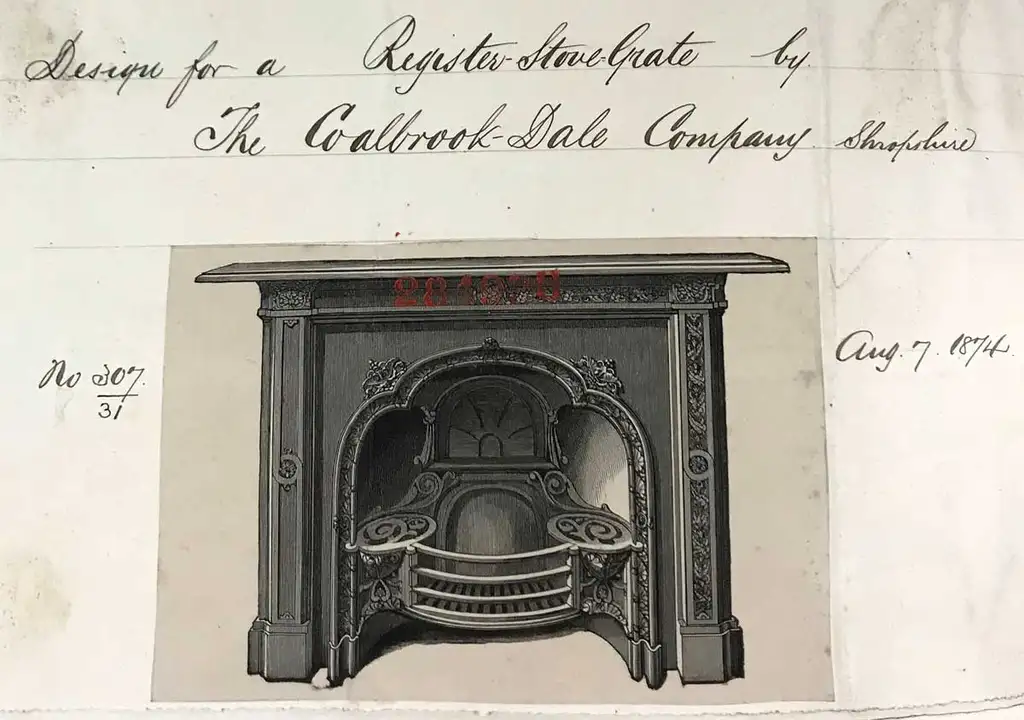 Design for a Register-Stove-Grate by
The Coalbrook-Dale Company Shropshire
No 307.
31
Aug. 7. 1874.